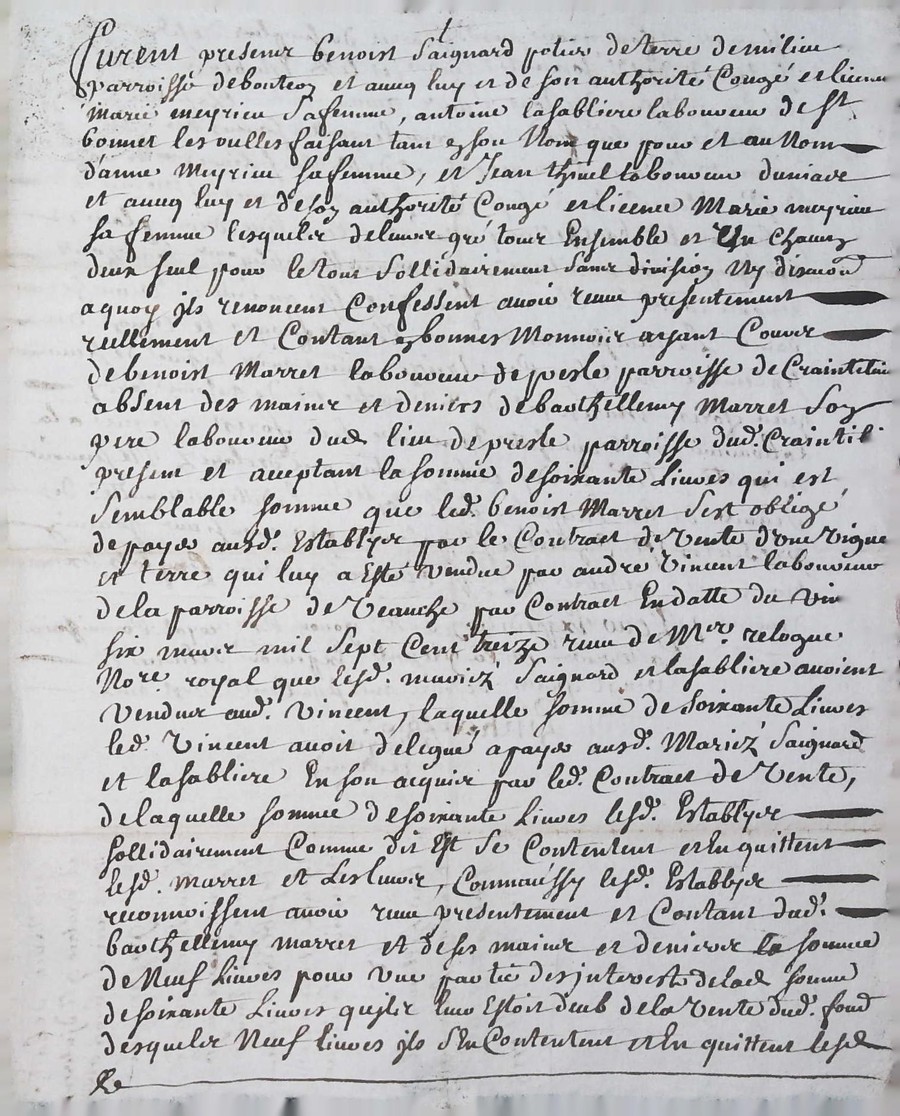 furent presens benoist Saignard potier de terre de milieu
parroisse de bouteon et avecq luy et de son authorité Congé et licence
marie meyrieu sa femme, antoine lasabliere laboureur de St
bonnet les oulles faisant tant en son Nom que pour et au Nom
d'anne Meyrieu sa femme, et Jean laboureur
et avecq luy et de son authorité Congé et licence Marie meyrieu
sa femme lesquels de leur gré tous Ensemble et Un chacun
deux seul pour le tout Sollidairement Sans division Ny discution
a quoy ils renoncent Confessent avoir receu presentement
reellement et Contant en bonnes Monnoies ayant Cours
de benoist Marret laboureur de presle parroisse de Craintilieu
absent des mains et deniers de barthellemy Marret Son
pere laboureur dud. lieu de presle parroisse dud. Craintili
present et aceptant la somme de soixante Livres qui est
Semblable somme que led. benoist Marret Sest obligé
de payer ausd. Establys par le Contract de Vente d'une Vigne
et terre qui luy a Esté Vendue par andré Vincent laboureur
de la parroisse de Veauche par Contract En datte du Vin
six mars mil Sept Cent treize receu de Mer. relogue
Nore. royal que lesd. mariéz Saignard et lasabliere avoient
Vendus aud. Vincent, laquelle somme de Soixante Livres
led. Vincent avoit delegué a payer ausd. Mariéz Saignard
et lasabliere En son acquit par led. Contract de Vente,
de laquelle somme de soixante Livres lesd. Establys
sollidairement Comme dit Est Se Contentent et En quittent
lesd. Marret et Les leurs, Comme aussy lesd. Establys
reconnoissent avoir receu presentement et Contant dud.
barthellemy marret et de ses mains et deniers la somme
de Neuf Livres pour Une partie des interests de lad. somme
de soixante Livres qu'ils leur Estoit deub de la Vente dud. fond
desquels Neuf Livres ils S'En Contentent et En quittent lesd